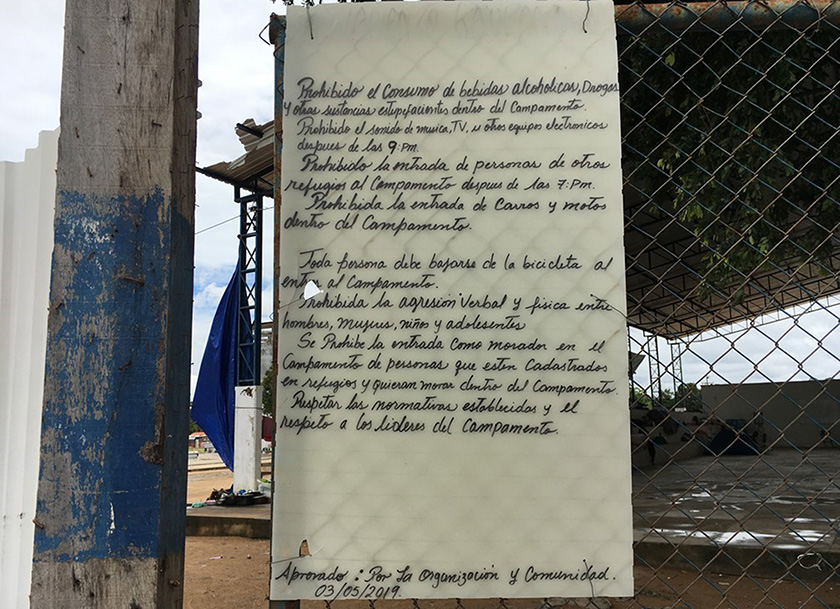 Prohibido el Consumo de bebidas alcoholicas, Drogas
y otras sustancias estupefacientes dentro del Campamento.
Prohibido el sonido de musica, TV, u otros equipos electronicos
despues de las 9:pm.
Prohibido la entrada de personas de otros
refugios al Campamento despues de las 7:Pm.
Prohibida la entrada de Carros y motos
dentro del Campamento.
Toda persona debe bajarse de la bicicleta al
al Campamento.
Prohibida la agresión Verbal y fisica entre
hombres, mujeres, niños y adolesentes
Se Prohibe la entrada como morador en el
Campamento de personas que esten Cadastrados
en refugios y quieran morar dentro del Campamento.
Respetar las normativas establecidas y el
respeto a los lideres del Campamento.
Aprovado : Por La Organización y Comunidad.
03/05/2019.